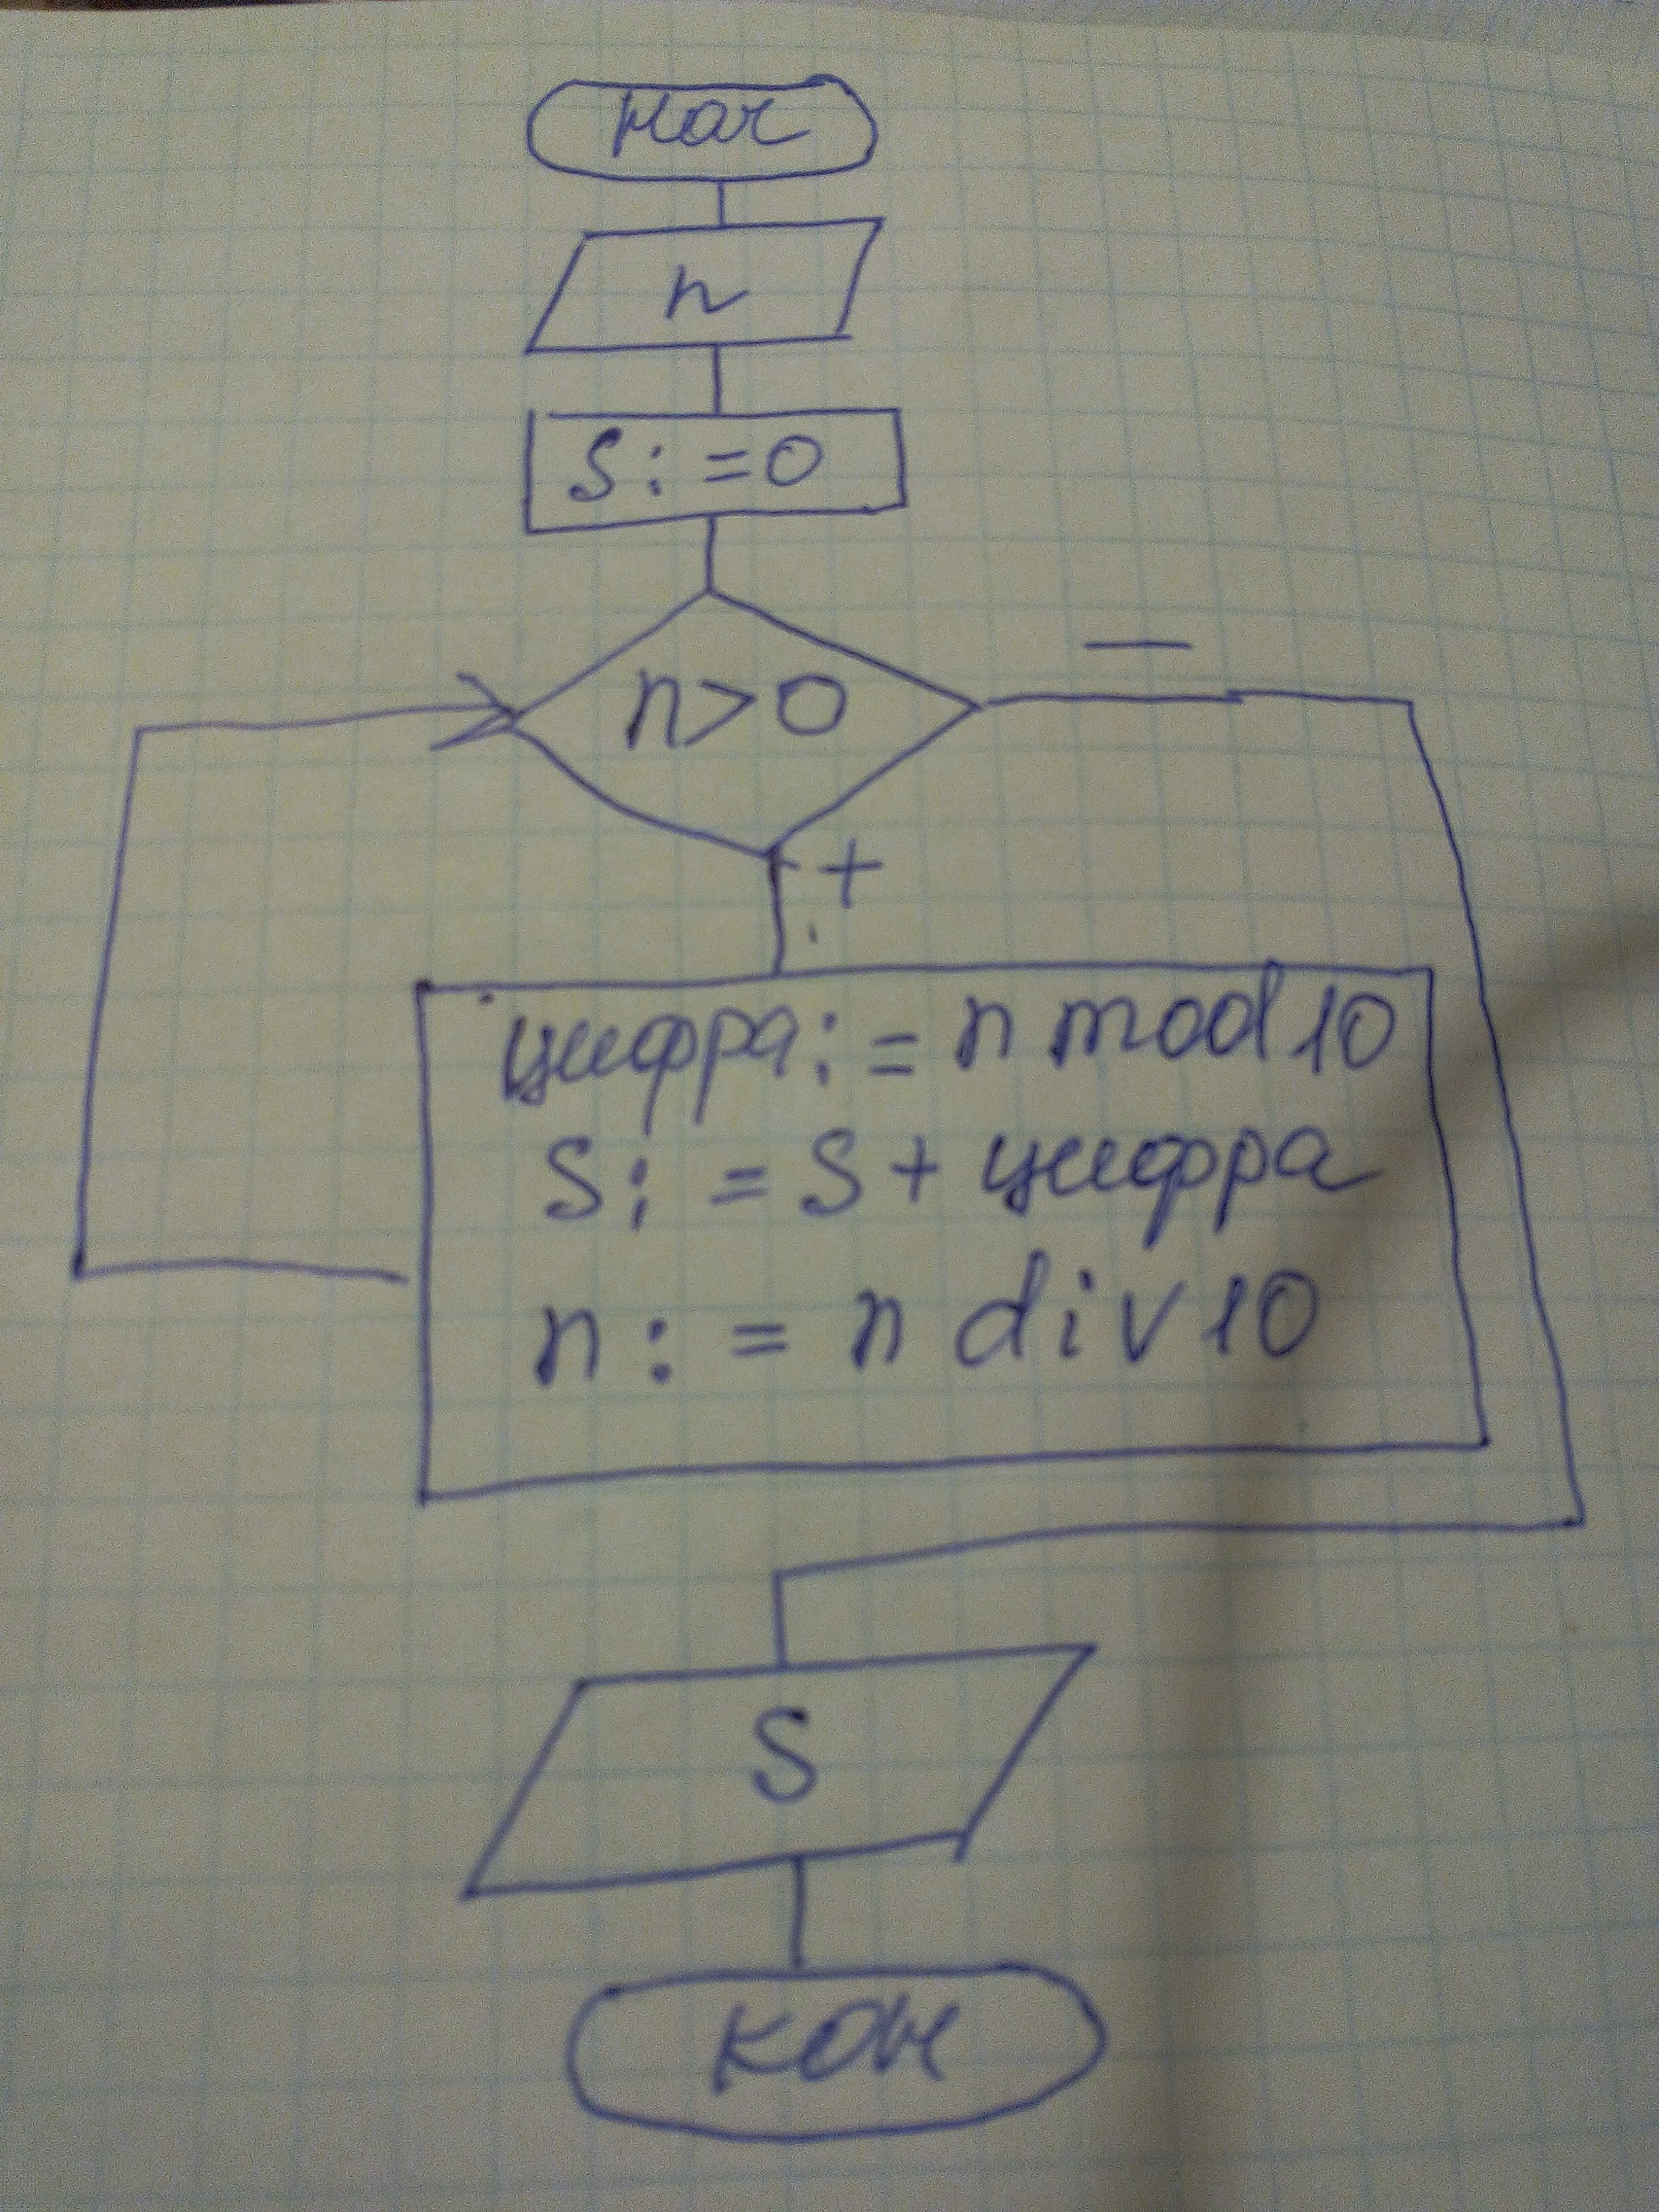 нач
n
S:=0
n>0
—
+
цифра:= n mod 10
S:= S + цифра
n:= n div 10
S
кон